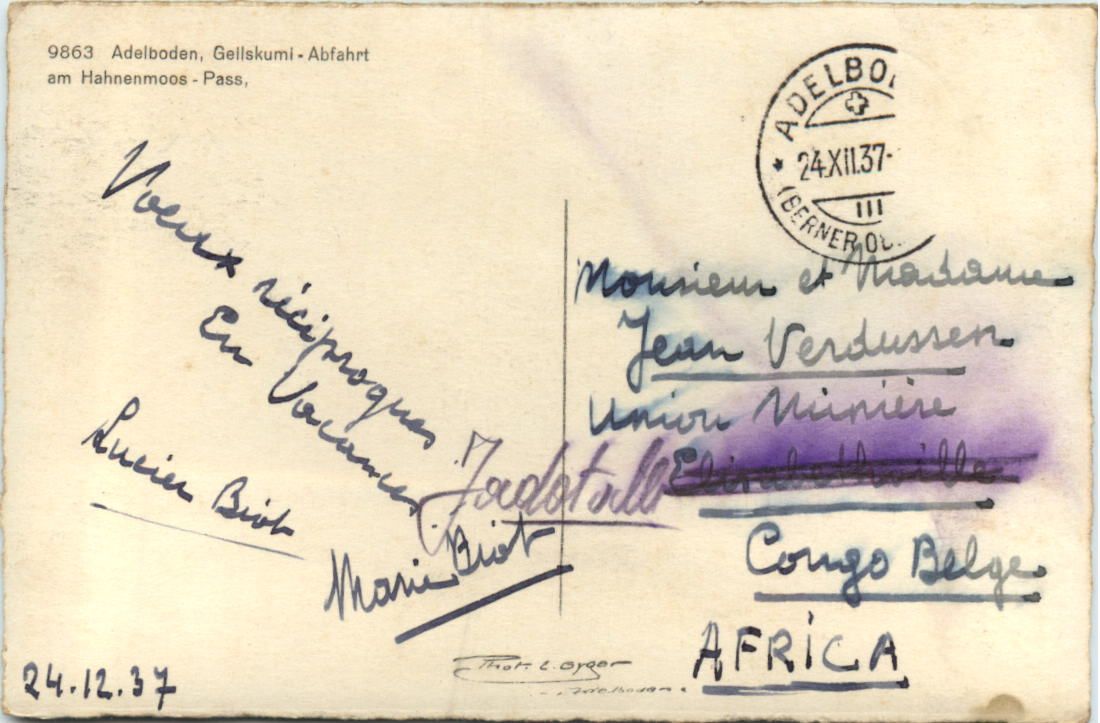 9863 Adelboden, Geilskumi - Abfahrt
am Hahnenmoos - Pass,
ADELBOD
24.XII.37-
III
(BERNER OB
Voeux réciproques
En Vacances
Lucien Biot
Marie Biot
24.12.37
Monsieur et Madame
Jean Verdussen
Union Minière
Elisabethville
Jadotville
Congo Belge.
AFRICA
Phot. E. Gyger
Adelboden.